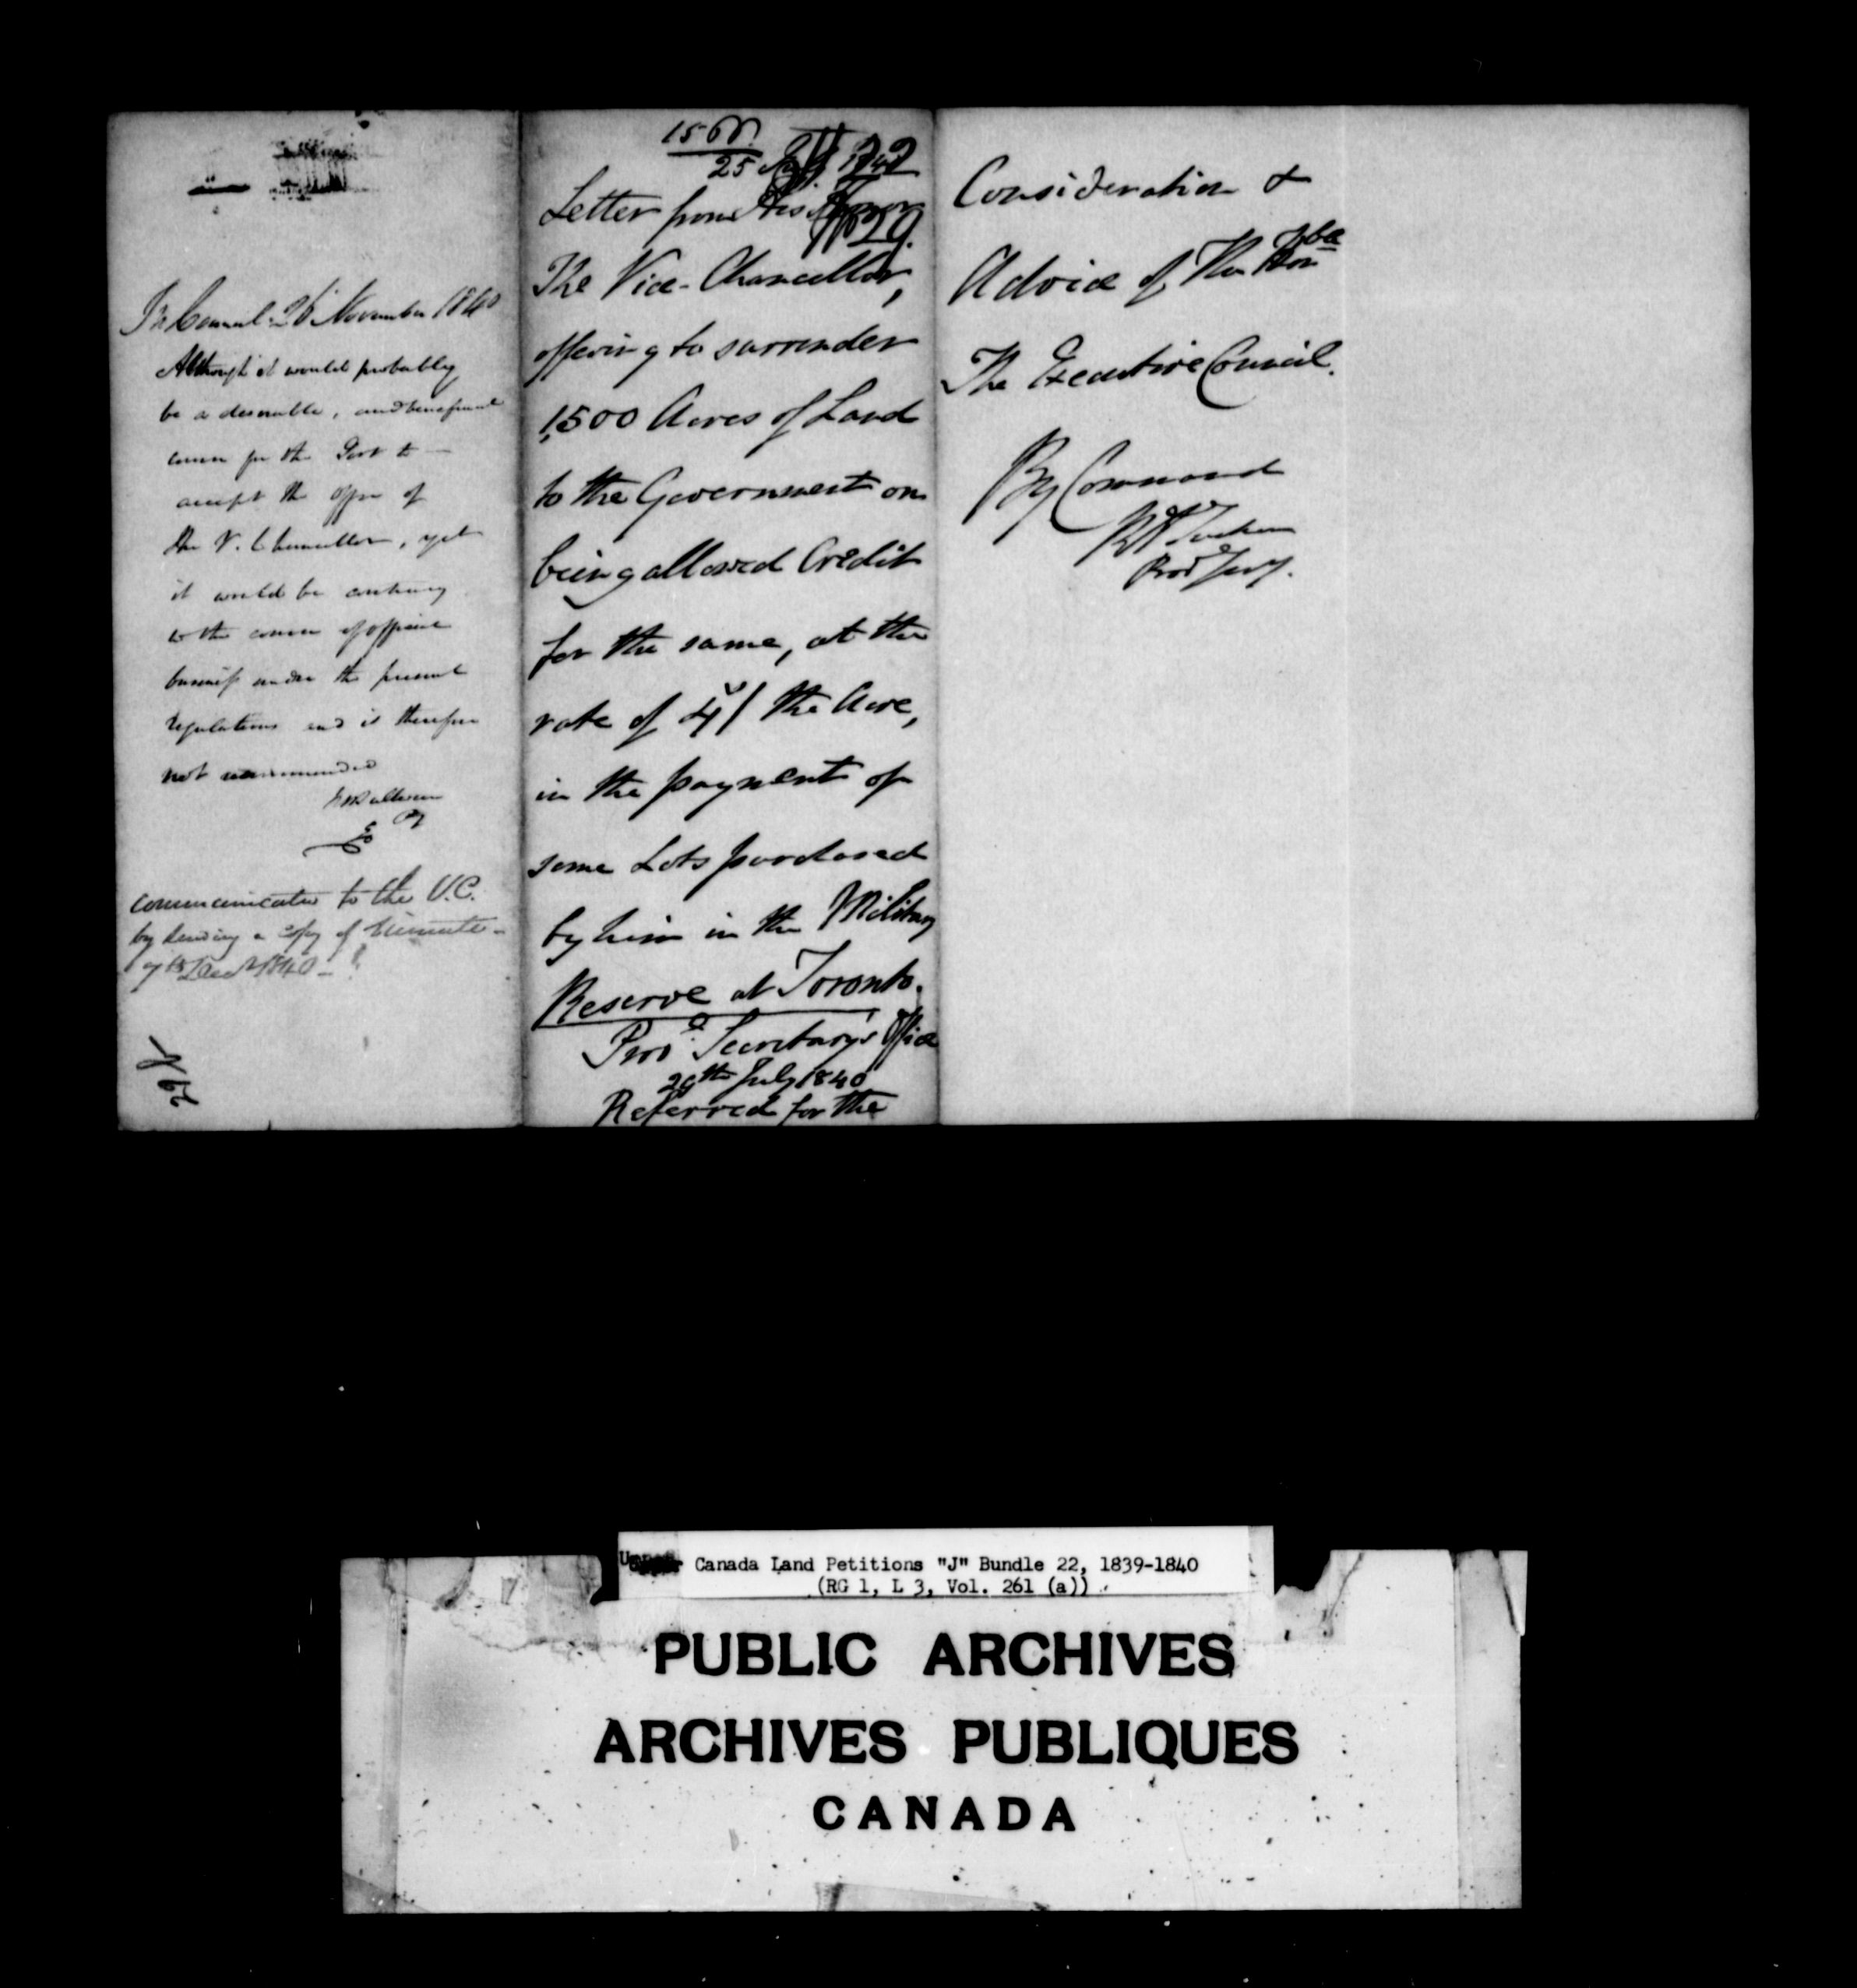 In Council 26 November 1840
Although it would probably
be a desirable, and beneficial
course for the Govt to —
accept the offer of
the V. Chancellor, yet
it would be contrary
to the course of official
business under the present
regulations and is therefore
not recommended
communicated to the V.C.
by sending a copy of Minute –
7th Decr 1840 –
25 July 1840
Letter from His Honor
The Vice-Chancellor,
offering to surrender
1,500 Acres of Land
to the Government on
being allowed Credit
for the same, at the
rate of 4/ the Acre,
in the payment of
some Lots purchased
by him in the Military
Reserve at Toronto.
Provl Secretary's Office
29th July 1840
Referred for the
Consideration &
Advice of The Honble
The Executive Council.
By Command
R A Tucker
Prov Secy.
Upper Canada Land Petitions "J" Bundle 22, 1839-1840
(RG 1, L 3, Vol. 261 (a))
PUBLIC ARCHIVES
ARCHIVES PUBLIQUES
CANADA